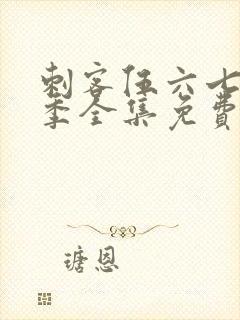 刺客伍六七
季全集免费
瑭恩